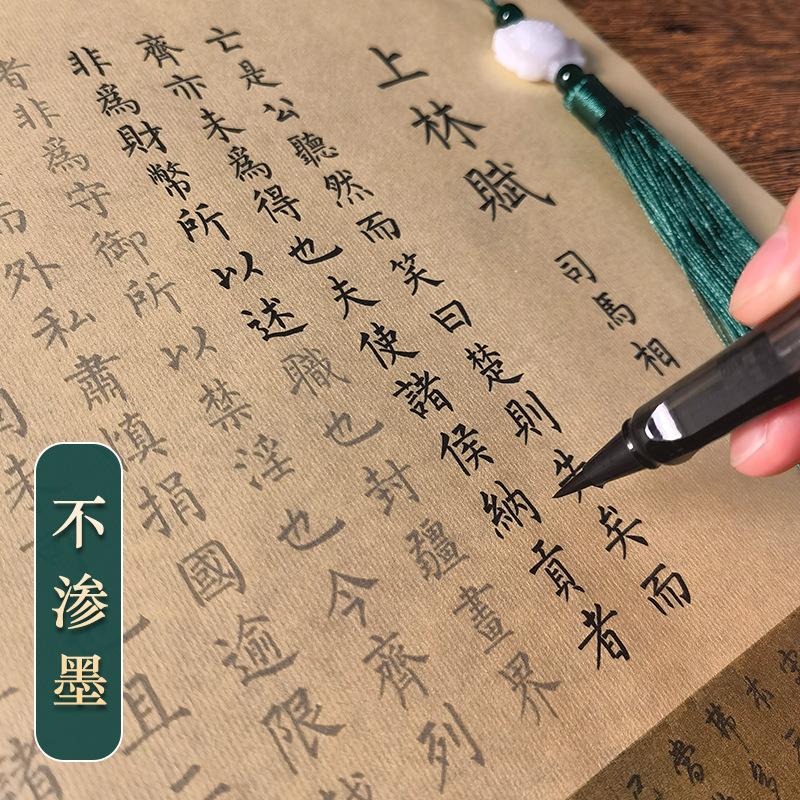 上林賦
司馬相
亡是公聽然而笑曰楚則失矣而
齊亦未爲得也夫使諸侯納貢者
非爲財幣所以述職也封疆畫界
者非爲守御所以禁淫也今齊列
而外私肅慎捐國逾限
未
且二
諸
不渗墨